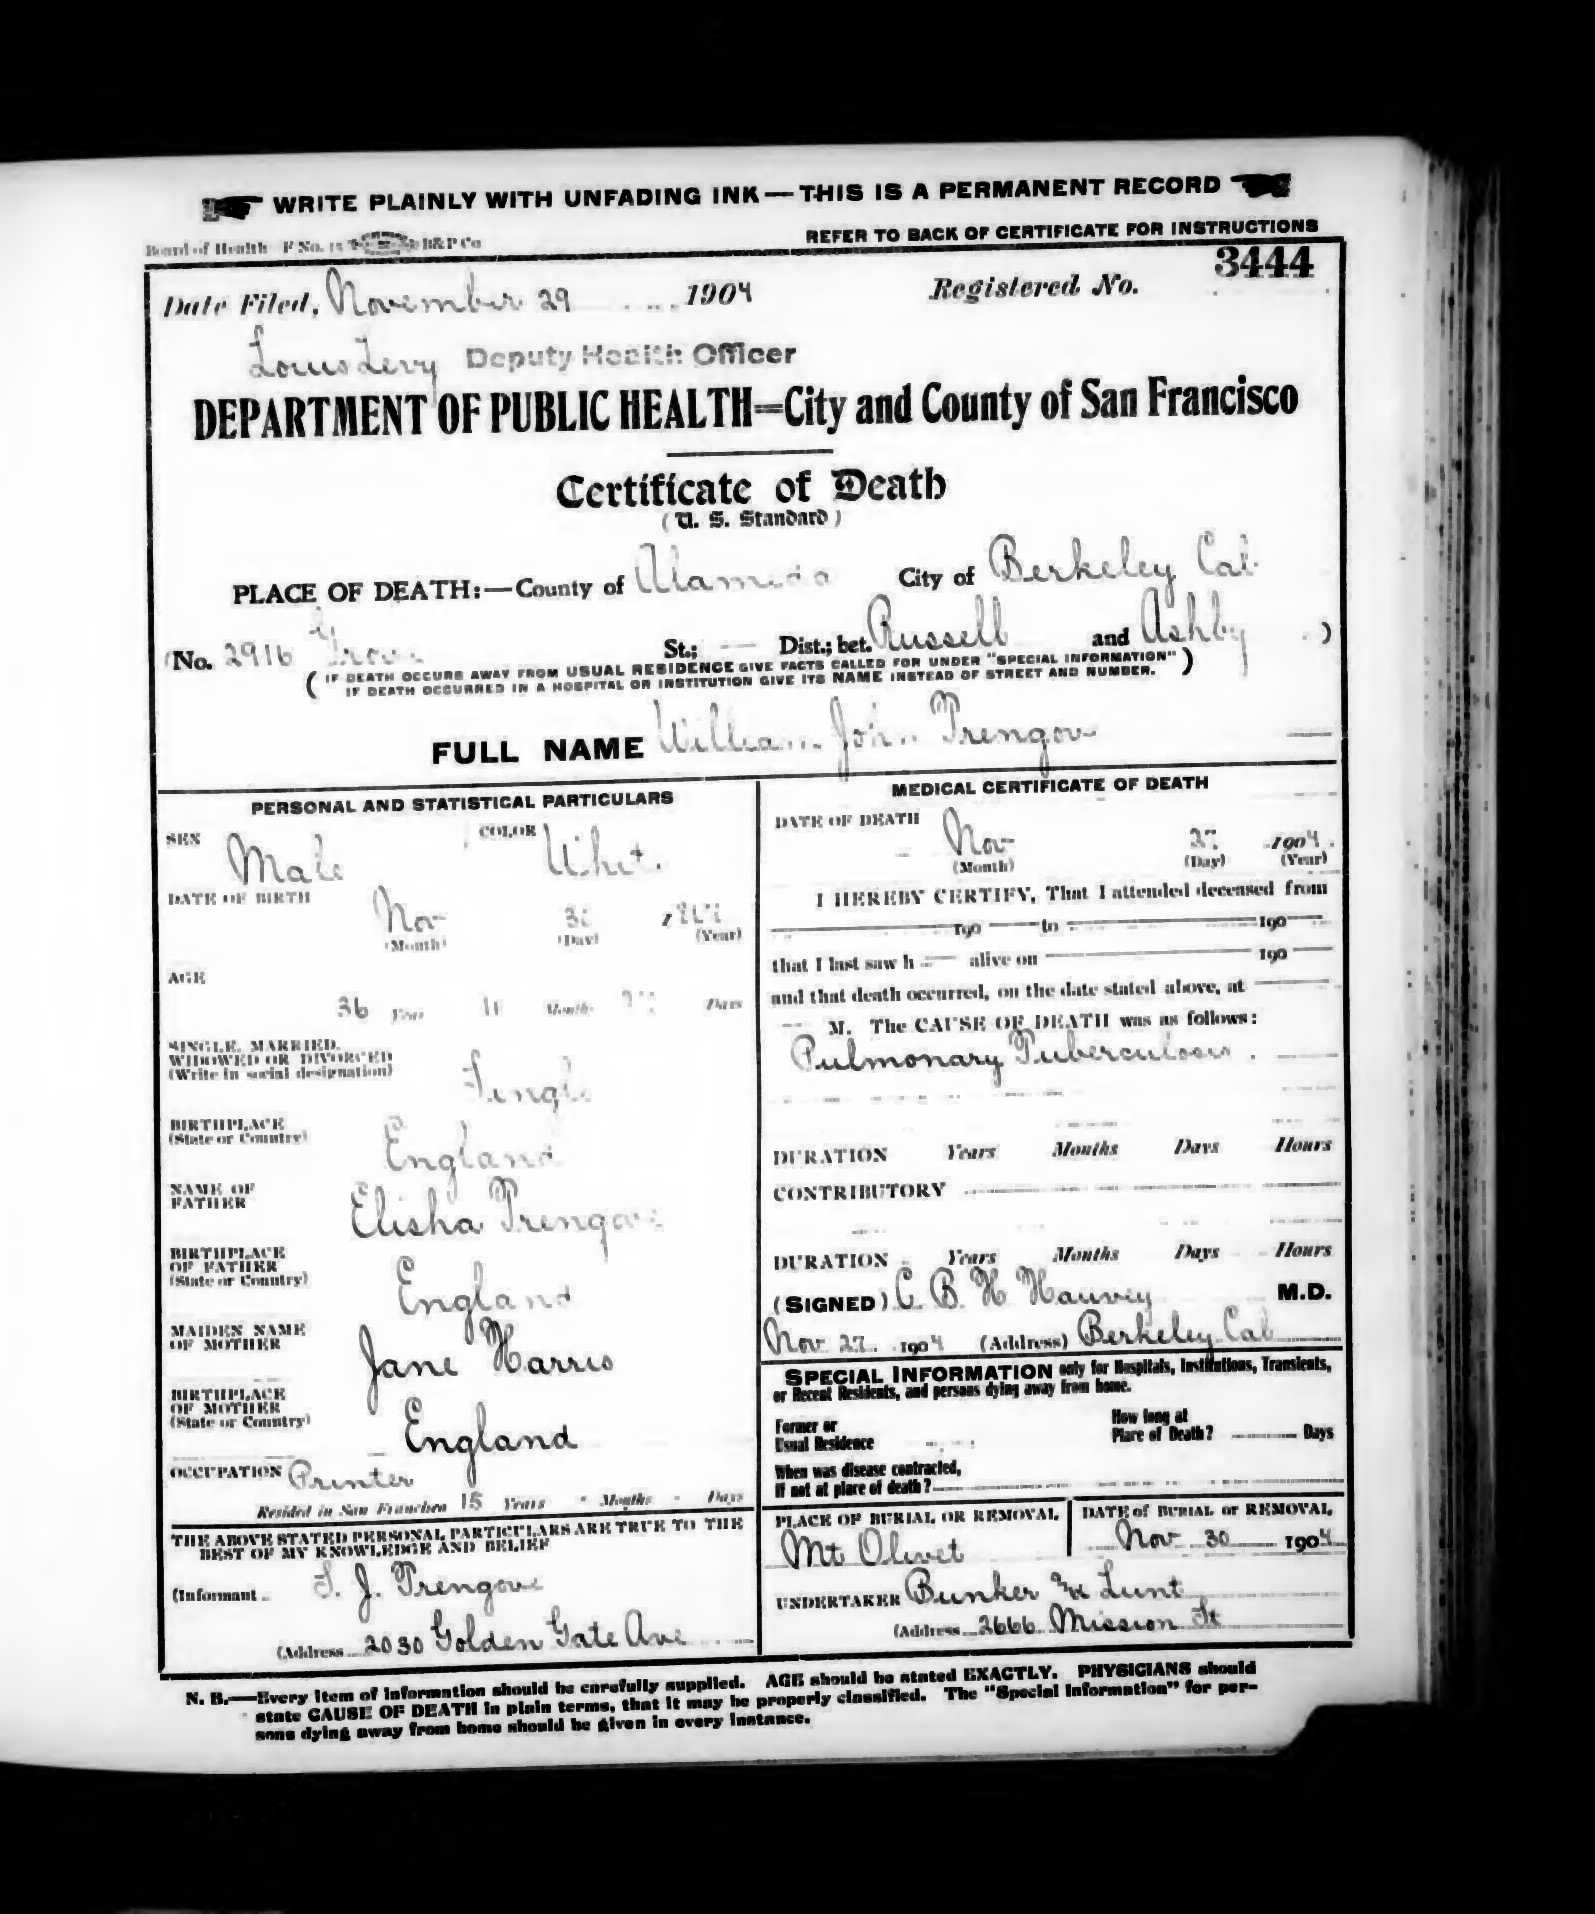 WRITE PLAINLY WITH UNFADING INK — THIS IS A PERMANENT RECORD
Board of Health F No. 15 H&P Co
REFER TO BACK OF CERTIFICATE FOR INSTRUCTIONS
Date Filed, November 29 1904 Registered No. 3444
Louis Levy Deputy Health Officer
DEPARTMENT OF PUBLIC HEALTH=City and County of San Francisco
Certificate of Death
(U. S. Standard)
PLACE OF DEATH:—County of Alameda City of Berkeley Cal
(No. 2916 Grove St.; Dist.; bet. Russell and Ashby )
( IF DEATH OCCURS AWAY FROM USUAL RESIDENCE GIVE FACTS CALLED FOR UNDER "SPECIAL INFORMATION" )
IF DEATH OCCURRED IN A HOSPITAL OR INSTITUTION GIVE ITS NAME INSTEAD OF STREET AND NUMBER.
FULL NAME William John Trengove
PERSONAL AND STATISTICAL PARTICULARS
SEX Male COLOR White
DATE OF BIRTH Nov 30
(Month) (Day) (Year)
AGE
36 Years 11 Months 27 Days
SINGLE, MARRIED,
WIDOWED OR DIVORCED
(Write in social designation) Single
BIRTHPLACE
(State or Country) England
NAME OF
FATHER Elisha Trengove
BIRTHPLACE
OF FATHER
(State or Country) England
MAIDEN NAME
OF MOTHER Jane Harris
BIRTHPLACE
OF MOTHER
(State or Country) England
OCCUPATION Printer
Resided in San Francisco 15 Years - Months - Days
THE ABOVE STATED PERSONAL PARTICULARS ARE TRUE TO THE
BEST OF MY KNOWLEDGE AND BELIEF
(Informant S. J. Trengove
(Address 2030 Golden Gate Ave
MEDICAL CERTIFICATE OF DEATH
DATE OF DEATH Nov 27 1904
(Month) (Day) (Year)
I HEREBY CERTIFY, That I attended deceased from
190 to 190
that I last saw h alive on 190
and that death occurred, on the date stated above, at
M. The CAUSE OF DEATH was as follows:
Pulmonary Tuberculosis
DURATION Years Months Days Hours
CONTRIBUTORY
DURATION Years Months Days Hours
(SIGNED) C. B. H M.D.
Nov 27 1904 (Address) Berkeley Cal
SPECIAL INFORMATION only for Hospitals, Institutions, Transients,
or Recent Residents, and persons dying away from home.
Former or
Usual Residence
How long at
Place of Death? Days
When was disease contracted,
If not at place of death?
PLACE OF BURIAL OR REMOVAL
Mt Olivet
DATE of BURIAL or REMOVAL
Nov 30 1904
UNDERTAKER Bunker & Lunt
(Address 2666 Mission St
N. B.—Every item of information should be carefully supplied. AGE should be stated EXACTLY. PHYSICIANS should
state CAUSE OF DEATH in plain terms, that it may be properly classified. The "Special Information" for per-
sons dying away from home should be given in every instance.